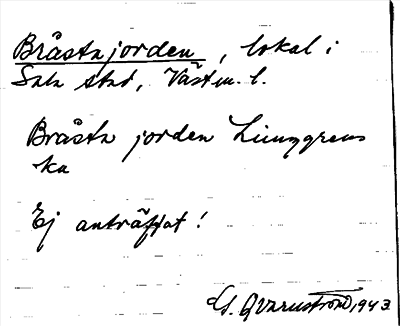 Bråstajorden, lokal i
Sala stad, Västm. l.
Bråsta jorden Ljunggrens
ka
Ej anträffat!
Qvarnström 1943